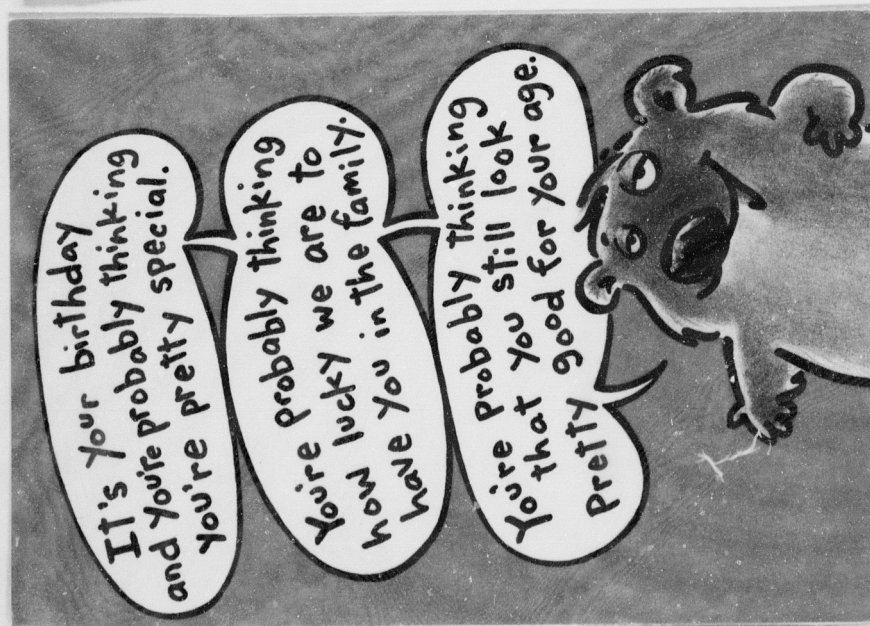 It's your birthday
and you're probably thinking
you're pretty special.
You're probably thinking
how lucky we are to
have you in the family.
You're probably thinking
that you still look
pretty good for your age.